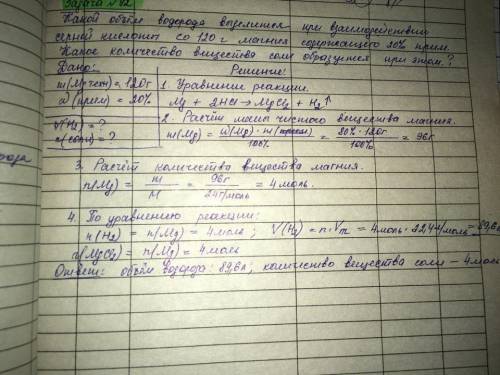 Задача №2
Какой объём водорода выделится при взаимодействии
серной кислоты со 120 г магния содержащего 20% прим.
Какое количество вещества соли образуется при этом?
Дано: Решение:
m(Mg+) = 120г 1. Уравнение реакции.
ω(прим) = 20% Mg + 2HCl → MgCl2 + H2↑
2. Расчёт массы чистого вещества магния.
V(H2) = ? m(Mg) = ω(Mg) · m / 100% = 80% · 120г / 100% = 96г
n(соли) = ?
3. Расчёт количества вещества магния.
n(Mg) = m / M = 96г / 24г/моль = 4 моль.
4. По уравнению реакции:
n(H2) = n(Mg) = 4 моль; V(H2) = n·Vm = 4 моль · 22,4 л/моль = 89,6л
n(MgCl2) = n(Mg) = 4 моль
Ответ: объём водорода: 89,6л; количество вещества соли – 4 моль